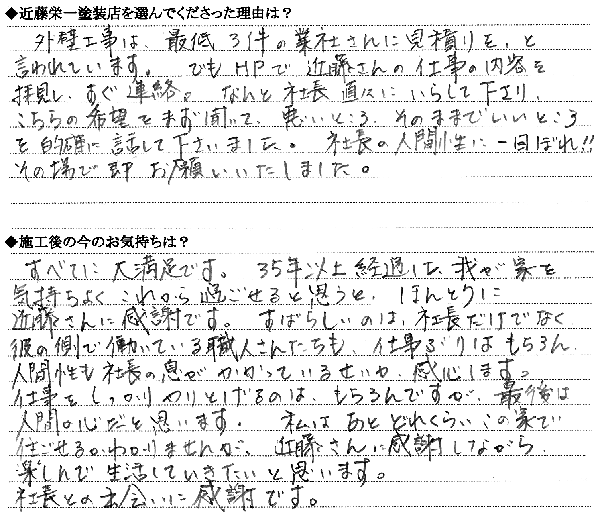 ◆近藤栄一塗装店を選んでくださった理由は？
外壁工事は、最低3件の業社さんに見積りを、と
言われています。でもHPで近藤さんの仕事の内容を
拝見し、すぐ連絡。なんと社長直々にいらして下さり、
こちらの希望をまず聞いて、悪いところ、そのままでいいところ
を的確に話して下さいました。社長の人間性に一目ぼれ!!
その場で即お願いいたしました。
◆施工後の今のお気持ちは？
すべてに大満足です。35年以上経過した我が家を
気持ちよくこれから過ごせると思うと、ほんとうに
近藤さんに感謝です。すばらしいのは、社長だけでなく
彼の側で働いている職人さんたちも、仕事ぶりはもちろん、
人間性も社長の息がかかっているせいか、感心します。
仕事をしっかりやりとげるのは、もちろんですが、最後は
人間の心だと思います。私はあとどれくらいこの家で
過ごせるかわかりませんが、近藤さんに感謝しながら、
楽しんで生活していきたいと思います。
社長との出会いに感謝です。